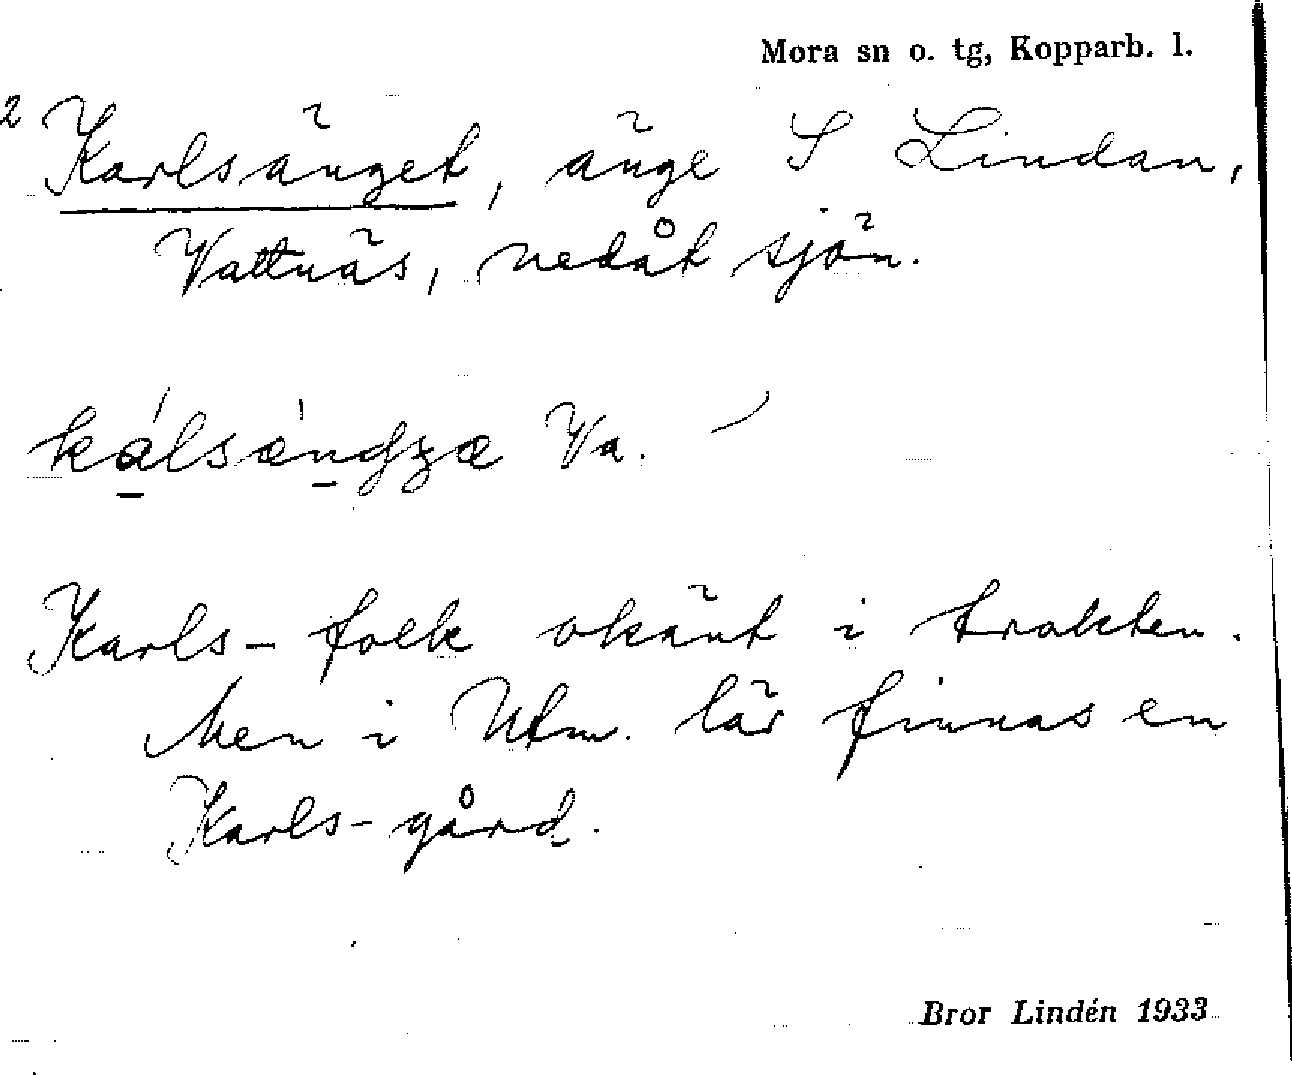 Mora sn o. tg, Kopparb. l.
2 Karlsänget, änge S Lindan,
Vattnäs, nedåt sjön.
kálsæ̀ngʒæ Va.
Karls- folk okänt i trakten.
Men i Utm. lär finnas en
Karls-gård.
Bror Lindén 1933